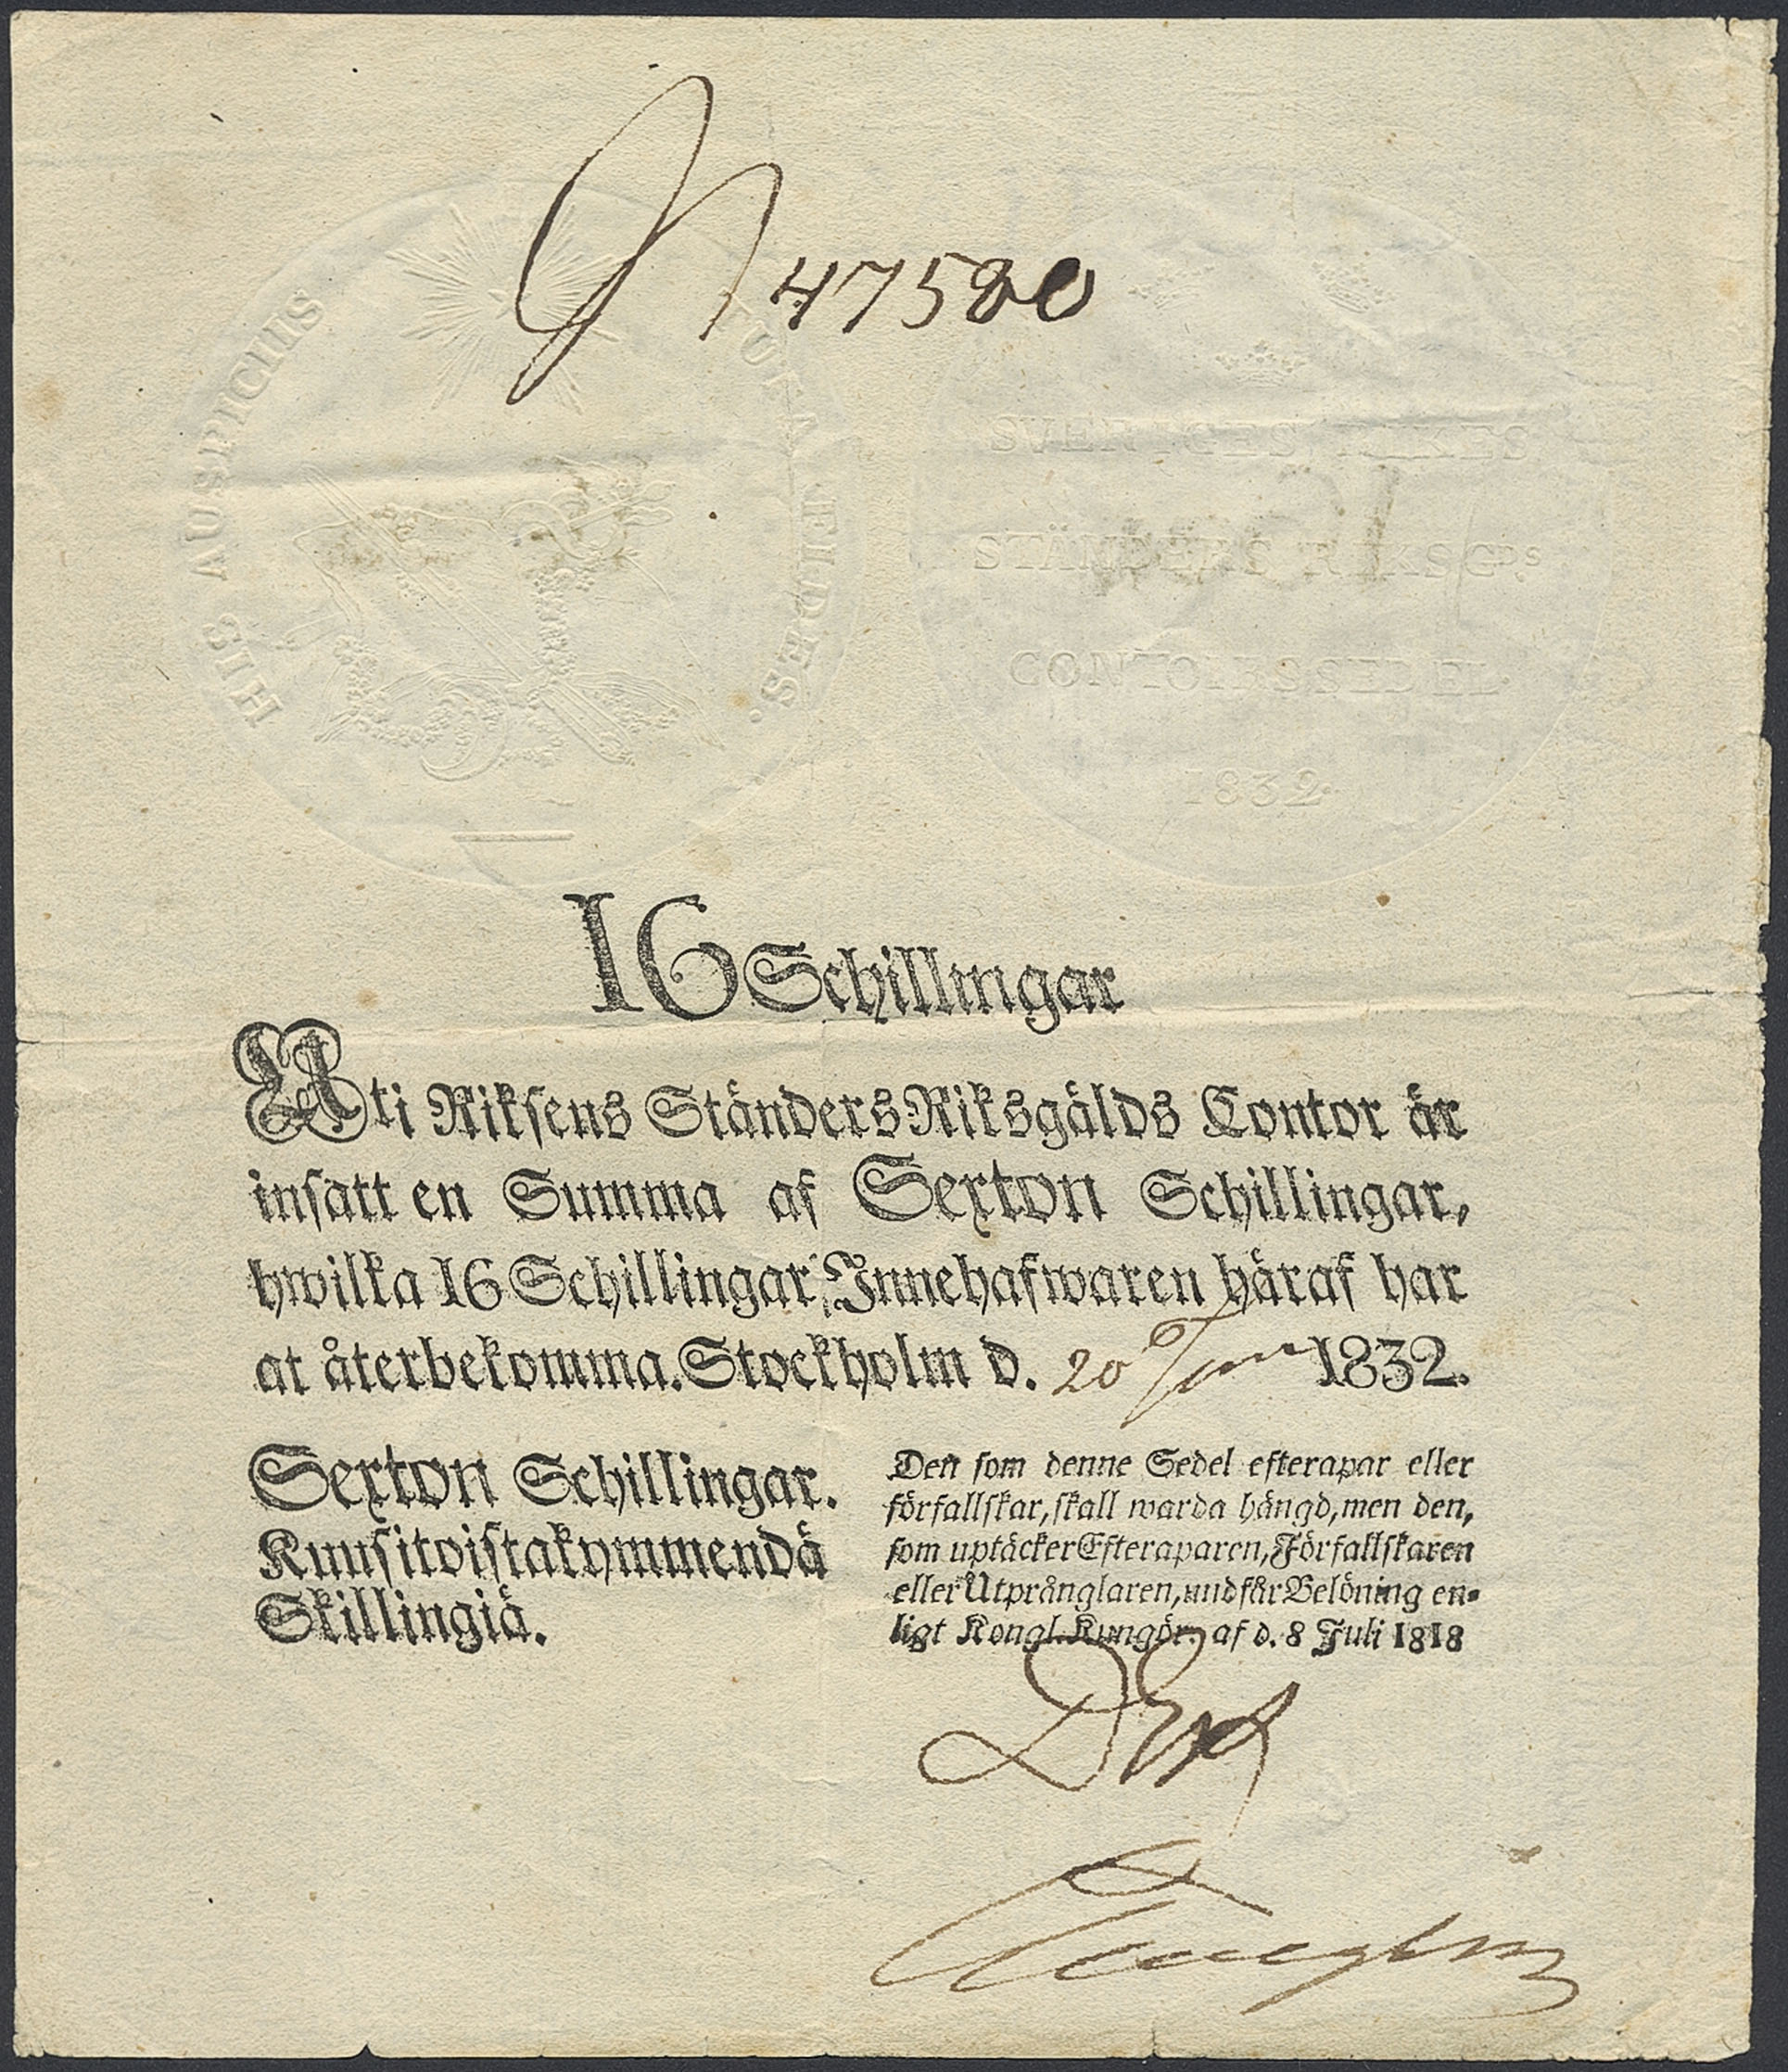 N 47580
HIS AUSPICIIS TUTA FIDES.
SVERIGES RIKES
STÄNDERS RIKSGDS
CONTOIRS SEDEL.
1832.
16 Schillingar
Uti Riksens Ständers Riksgälds Contor är
insatt en Summa af Sexton Schillingar,
hwilka 16 Schillingar Innehafwaren häraf har
at återbekomma. Stockholm d. 20 1832.
Sexton Schillingar.
Kuusitoistakymmendä
Skillingiä.
Den som denne Sedel efterapar eller
förfallskar, skall warda hängd, men den,
som uptäcker Efteraparen, Förfallskaren
eller Utprånglaren, undfår Belöning en-
ligt Kongl. Kungör. af d. 8 Juli 1818